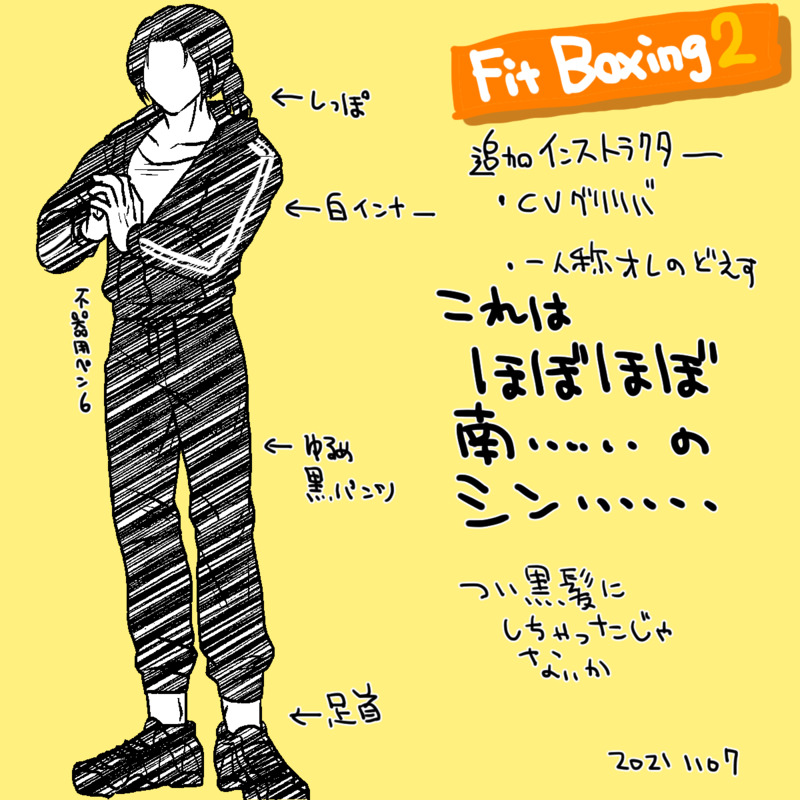 Fit Boxing2
追加インストラクター
・CVグリリバ
・一人称オレのどえす
これは
ほぼほぼ
南‥‥‥の
シン‥‥‥
つい黒髪に
しちゃったじゃ
ないか
←しっぽ
←白インナー
不器用ペン6
←ゆるめ
黒パンツ
←足首
20211107